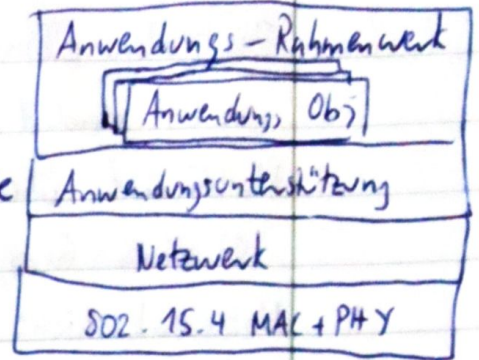 Anwendungs - Rahmenwerk
Anwendungs Obj
e Anwendungsunterstützung
Netzwerk
802.15.4 MAC + PHY